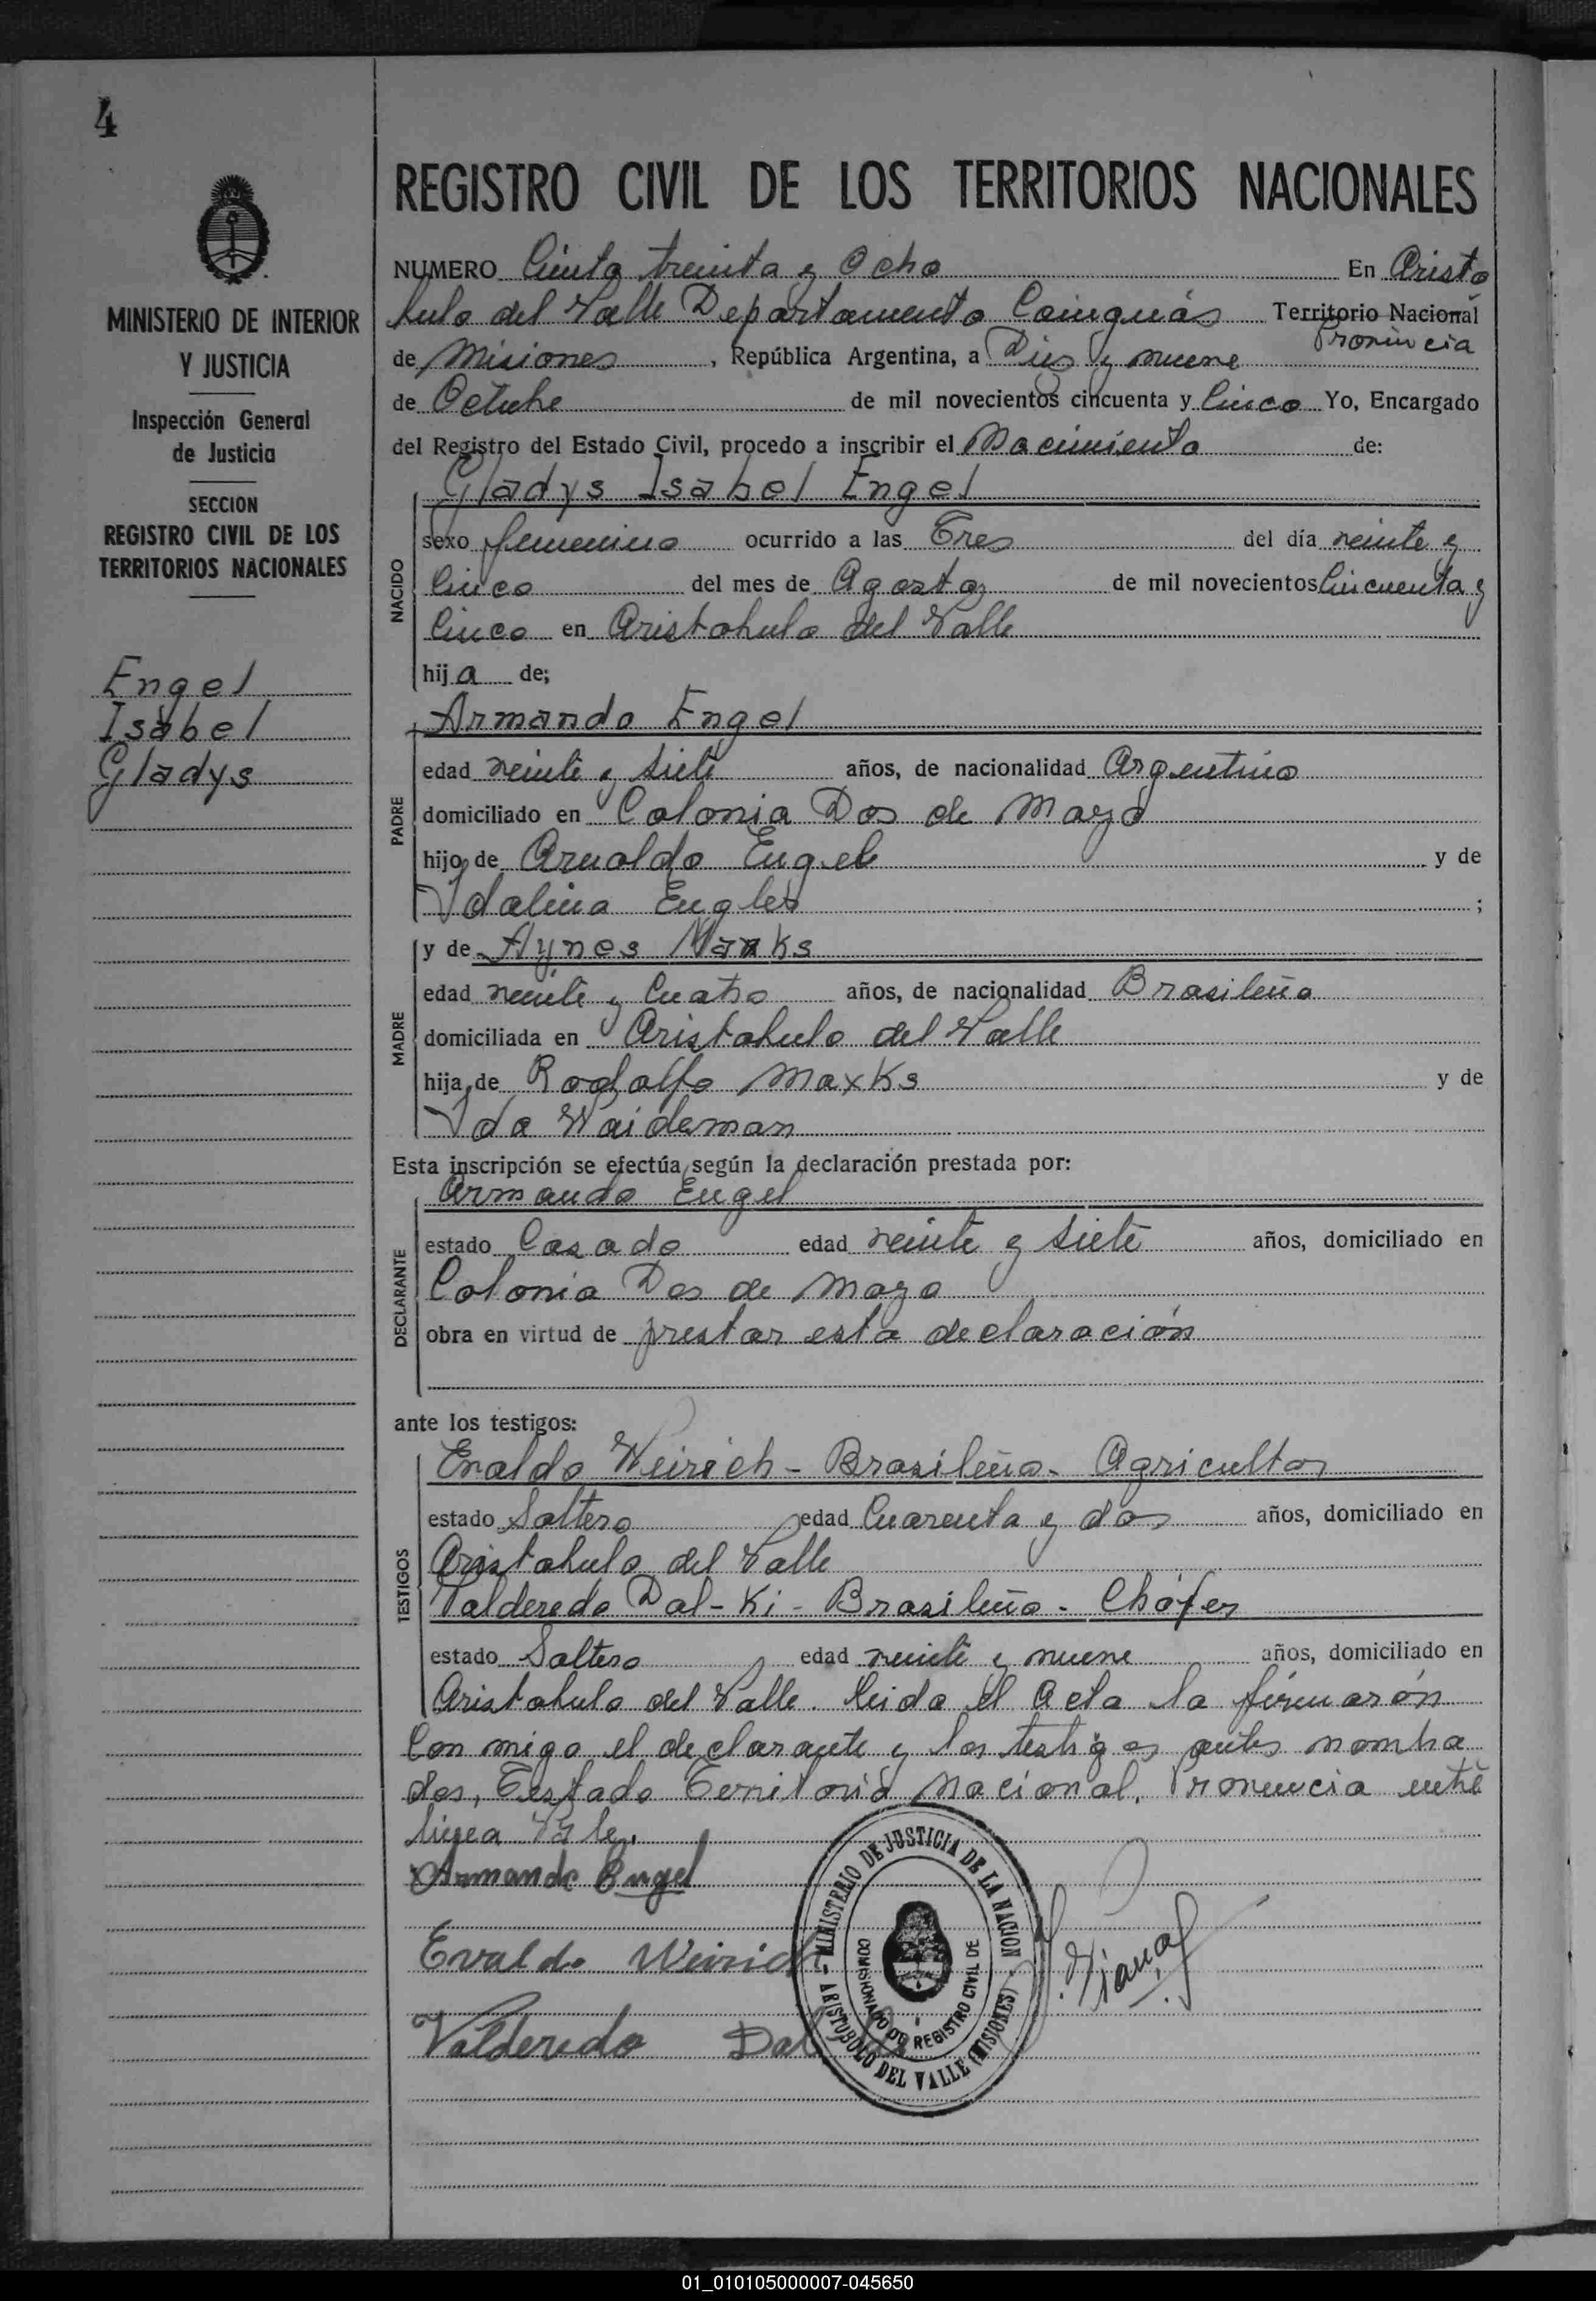 4
REGISTRO CIVIL DE LOS TERRITORIOS NACIONALES
MINISTERIO DE INTERIOR
Y JUSTICIA
Inspección General
de Justicia
SECCION
REGISTRO CIVIL DE LOS
TERRITORIOS NACIONALES
Engel
Isabel
Gladys
NUMERO Ciento treinta y Ocho En Aristo
bulo del Valle Departamento Cainguás Territorio Nacional
Provincia
de Misiones, República Argentina, a Diez y nueve
de Octubre de mil novecientos cincuenta y Cinco Yo, Encargado
del Registro del Estado Civil, procedo a inscribir el Nacimiento de:
Gladys Isabel Engel
NACIDO
sexo femenino ocurrido a las Tres del día veinte y
Cinco del mes de Agosto de mil novecientos Cincuenta y
Cinco en Aristobulo del Valle
hija de;
Armando Engel
PADRE
edad veinte y siete años, de nacionalidad Argentino
domiciliado en Colonia Dos de Mayo
hijo de Arnoldo Engel y de
Idalina Engler ;
y de Aynes Marks
MADRE
edad veinte y Cuatro años, de nacionalidad Brasileña
domiciliada en Aristobulo del Valle
hija de Rodolfo Maxks y de
Ida Waideman
Esta inscripción se efectúa según la declaración prestada por:
Armando Engel
DECLARANTE
estado Casado edad veinte y siete años, domiciliado en
Colonia Dos de Mayo
obra en virtud de prestar esta declaración
ante los testigos:
Evaldo Weirich - Brasileño - Agricultor
TESTIGOS
estado Soltero edad Cuarenta y dos años, domiciliado en
Aristobulo del Valle
Valderedo Dal-Ki - Brasileño - Chófer
estado Soltero edad veinte y nueve años, domiciliado en
Aristobulo del Valle. leida el Acta la firmarón
Con migo el declarante y los testigos antes nombra
dos, Testado Territorio Nacional. Provincia entre
linea Vale.
Armando Engel
Evaldo Weirich
Valderedo Dal
MINISTERIO DE JUSTICIA DE LA NACION
COMISIONADO DE REGISTRO CIVIL DE
ARISTOBULO DEL VALLE (MISIONES)
01_010105000007-045650